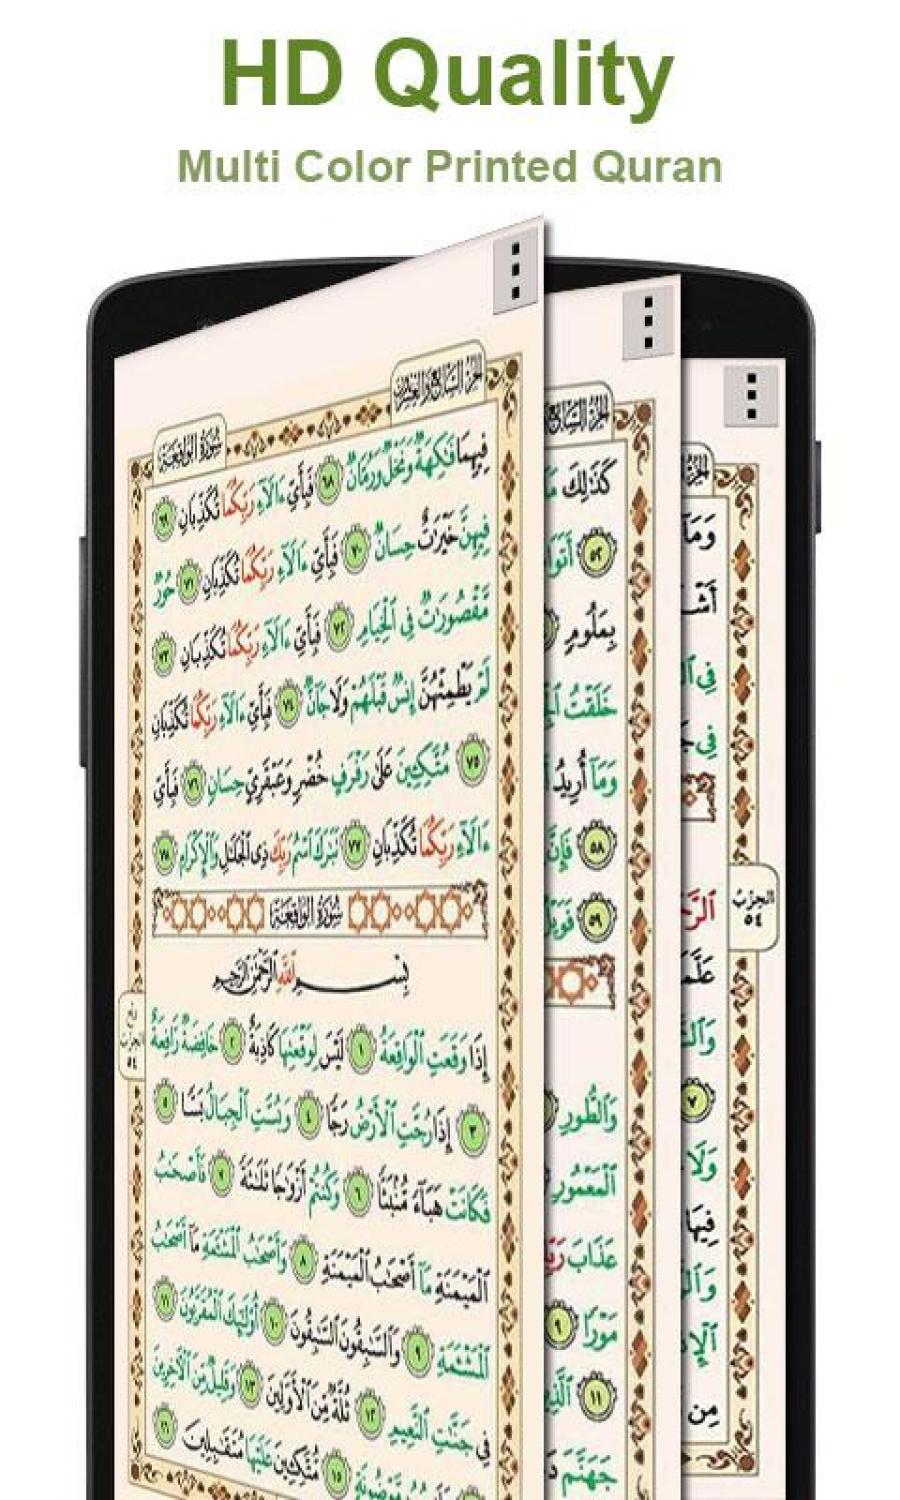 HD Quality
Multi Color Printed Quran
الجزء السابع والعشرون
سورة الواقعة
فِيهِمَا فَٰكِهَةٌ وَنَخْلٌ وَرُمَّانٌ ٦٨ فَبِأَيِّ ءَالَآءِ رَبِّكُمَا تُكَذِّبَانِ ٦٩
فِيهِنَّ خَيْرَٰتٌ حِسَانٌ ٧٠ فَبِأَيِّ ءَالَآءِ رَبِّكُمَا تُكَذِّبَانِ ٧١ حُورٌ
مَّقْصُورَٰتٌ فِي ٱلْخِيَامِ ٧٢ فَبِأَيِّ ءَالَآءِ رَبِّكُمَا تُكَذِّبَانِ ٧٣
لَمْ يَطْمِثْهُنَّ إِنسٌ قَبْلَهُمْ وَلَا جَآنٌّ ٧٤ فَبِأَيِّ ءَالَآءِ رَبِّكُمَا تُكَذِّبَانِ
٧٥ مُتَّكِـِٔينَ عَلَىٰ رَفْرَفٍ خُضْرٍ وَعَبْقَرِيٍّ حِسَانٍ ٧٦ فَبِأَيِّ
ءَالَآءِ رَبِّكُمَا تُكَذِّبَانِ ٧٧ تَبَٰرَكَ ٱسْمُ رَبِّكَ ذِي ٱلْجَلَٰلِ وَٱلْإِكْرَامِ ٧٨
سورة الواقعة
بِسْمِ ٱللَّهِ ٱلرَّحْمَٰنِ ٱلرَّحِيمِ
إِذَا وَقَعَتِ ٱلْوَاقِعَةُ ١ لَيْسَ لِوَقْعَتِهَا كَاذِبَةٌ ٢ خَافِضَةٌ رَّافِعَةٌ
٣ إِذَا رُجَّتِ ٱلْأَرْضُ رَجًّا ٤ وَبُسَّتِ ٱلْجِبَالُ بَسًّا ٥
فَكَانَتْ هَبَآءً مُّنۢبَثًّا ٦ وَكُنتُمْ أَزْوَٰجًا ثَلَٰثَةً ٧ فَأَصْحَٰبُ
ٱلْمَيْمَنَةِ مَآ أَصْحَٰبُ ٱلْمَيْمَنَةِ ٨ وَأَصْحَٰبُ ٱلْمَشْـَٔمَةِ مَآ أَصْحَٰبُ
ٱلْمَشْـَٔمَةِ ٩ وَٱلسَّٰبِقُونَ ٱلسَّٰبِقُونَ ١٠ أُو۟لَٰٓئِكَ ٱلْمُقَرَّبُونَ ١١
فِي جَنَّٰتِ ٱلنَّعِيمِ ١٢ ثُلَّةٌ مِّنَ ٱلْأَوَّلِينَ ١٣ وَقَلِيلٌ مِّنَ ٱلْءَاخِرِينَ
مَّوْضُونَةٍ ١٥ مُّتَّكِـِٔينَ عَلَيْهَا مُتَقَٰبِلِينَ ١٦
كَذَٰلِكَ
٥٢
بِمَلُومٍ
خَلَقْتُ
وَمَآ أُرِيدُ
٥٨ فَإِنَّ
٥٩
وَٱلطُّورِ
ٱلْمَعْمُورِ
عَذَابَ
مَوْرًا ٩
١١
جَهَنَّمَ
وَمَآ
فِي
فِي
الحزب
٥٤
٧
وَلَا
فِيهَا
مِن